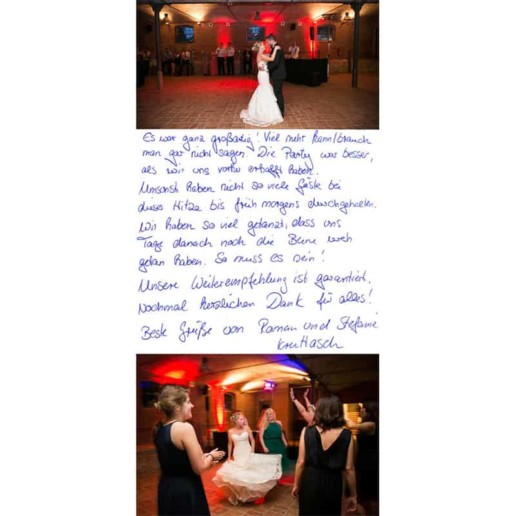 Es war ganz großartig! Viel mehr kann/brauch
man gar nicht sagen. Die Party war besser,
als wir uns vorher erhofft haben.
Umsonst haben nicht so viele Gäste bei
dieser Hitze bis früh morgens durchgehalten.
Wir haben so viel getanzt, dass uns
Tage danach noch die Beine weh
getan haben. So muss es sein!
Unsere Weiterempfehlung ist garantiert.
Nochmal herzlichen Dank für alles!
Beste Grüße von Roman und Stefanie